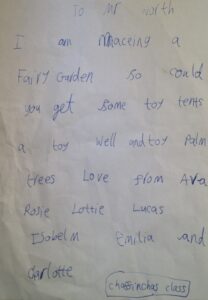 To Mr North
I am maceing a
Fairy Garden so could
you get some toy tents
a toy well and toy Palm
trees Love from Ava
Rosie Lottie Lucas
Isobel M Emilia and
Carlotte
chaffinchas class